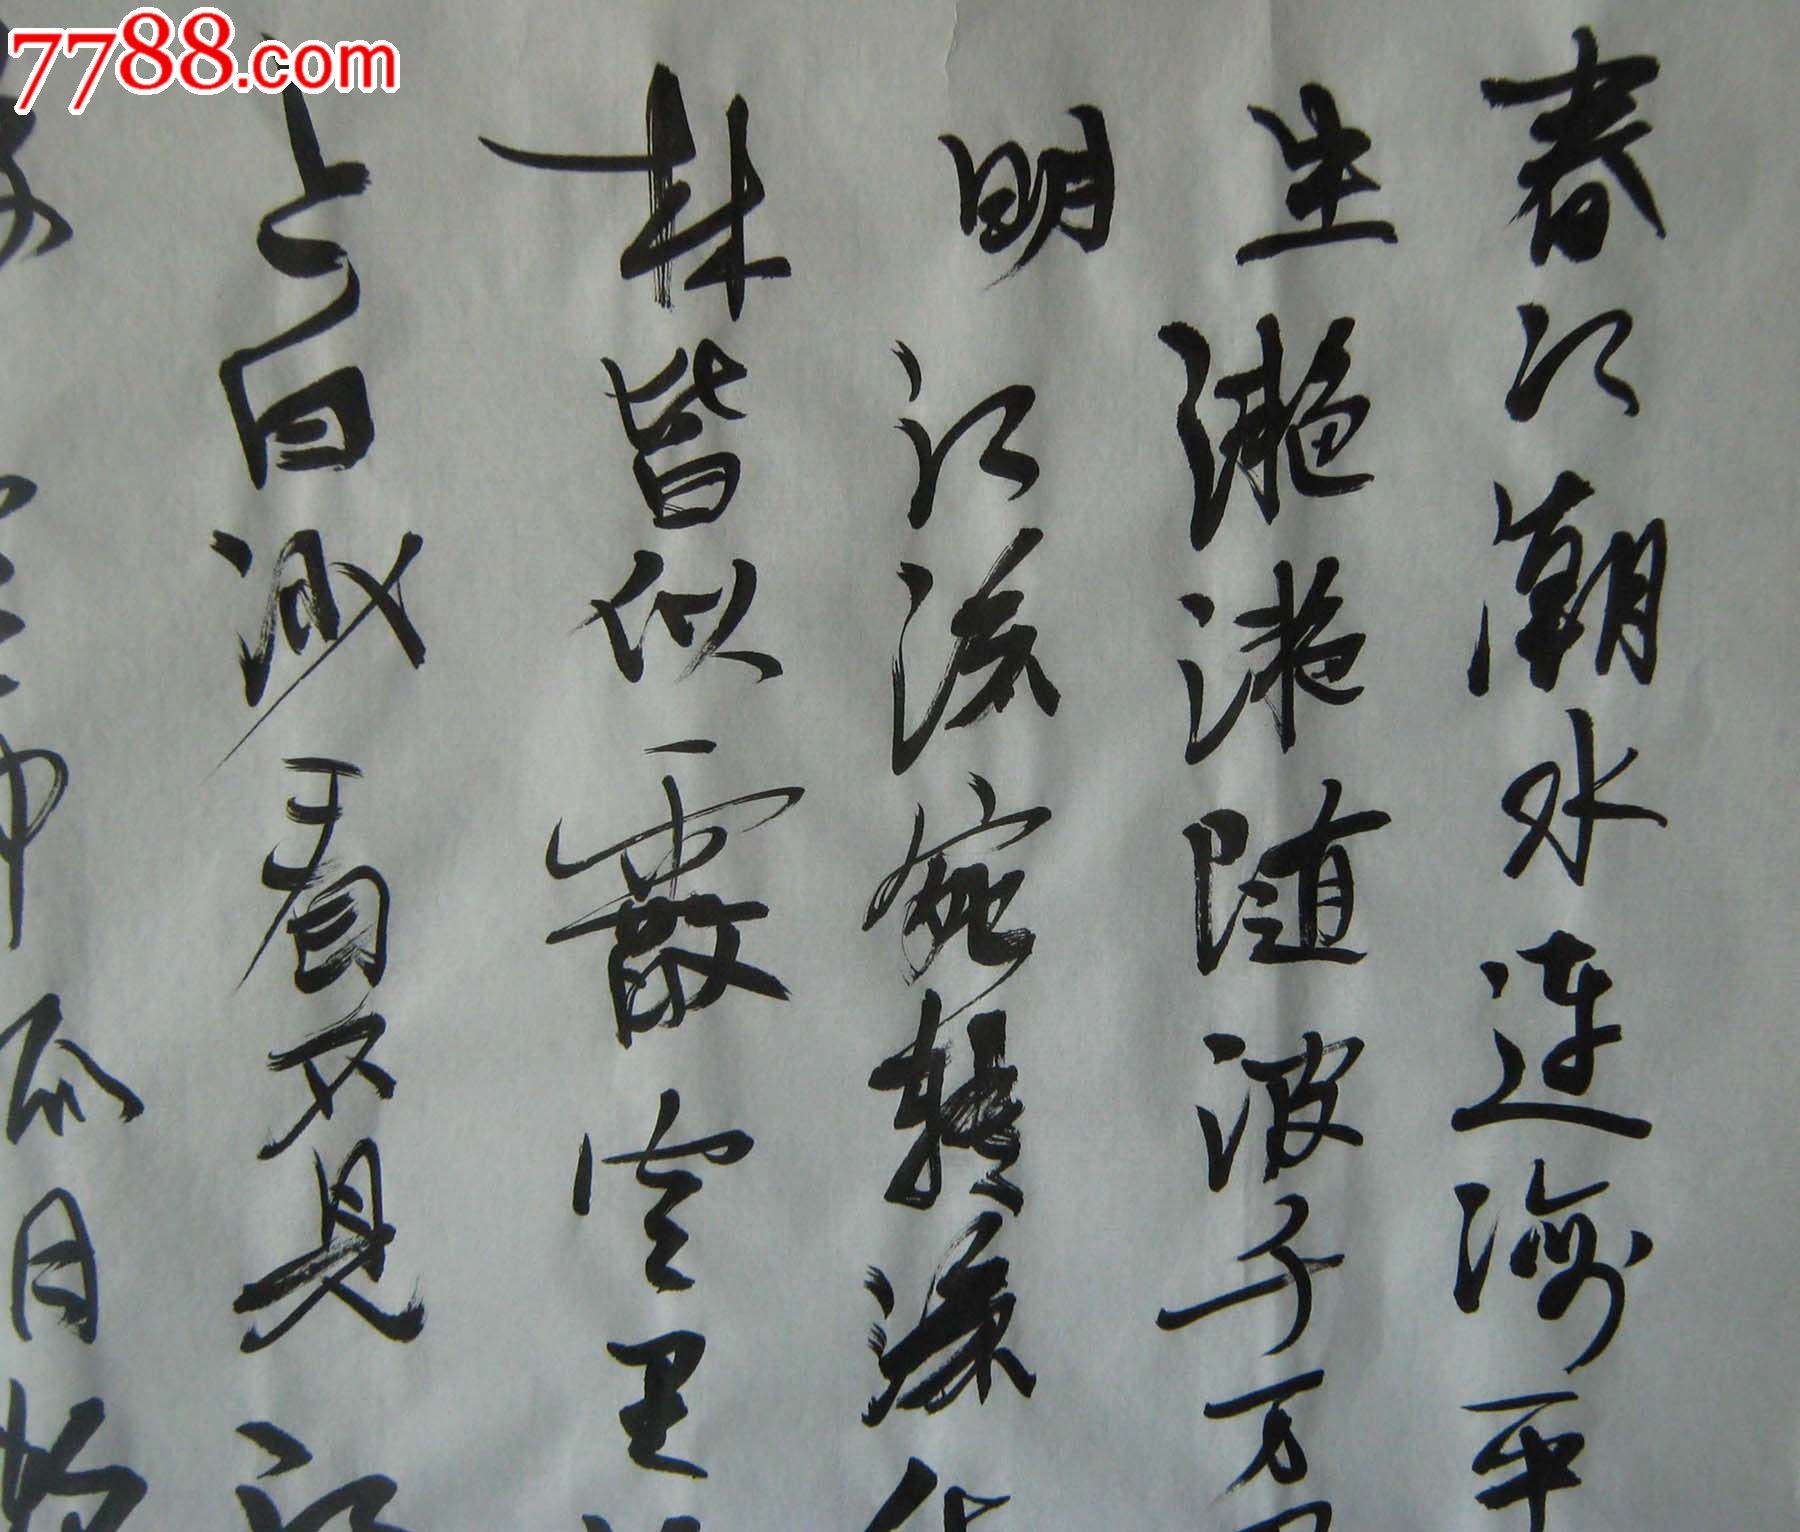 7788.com
春江潮水连海平
生滟滟随波千万
明江流宛转
林皆似霰空里
上白沙看不見江
中孤月